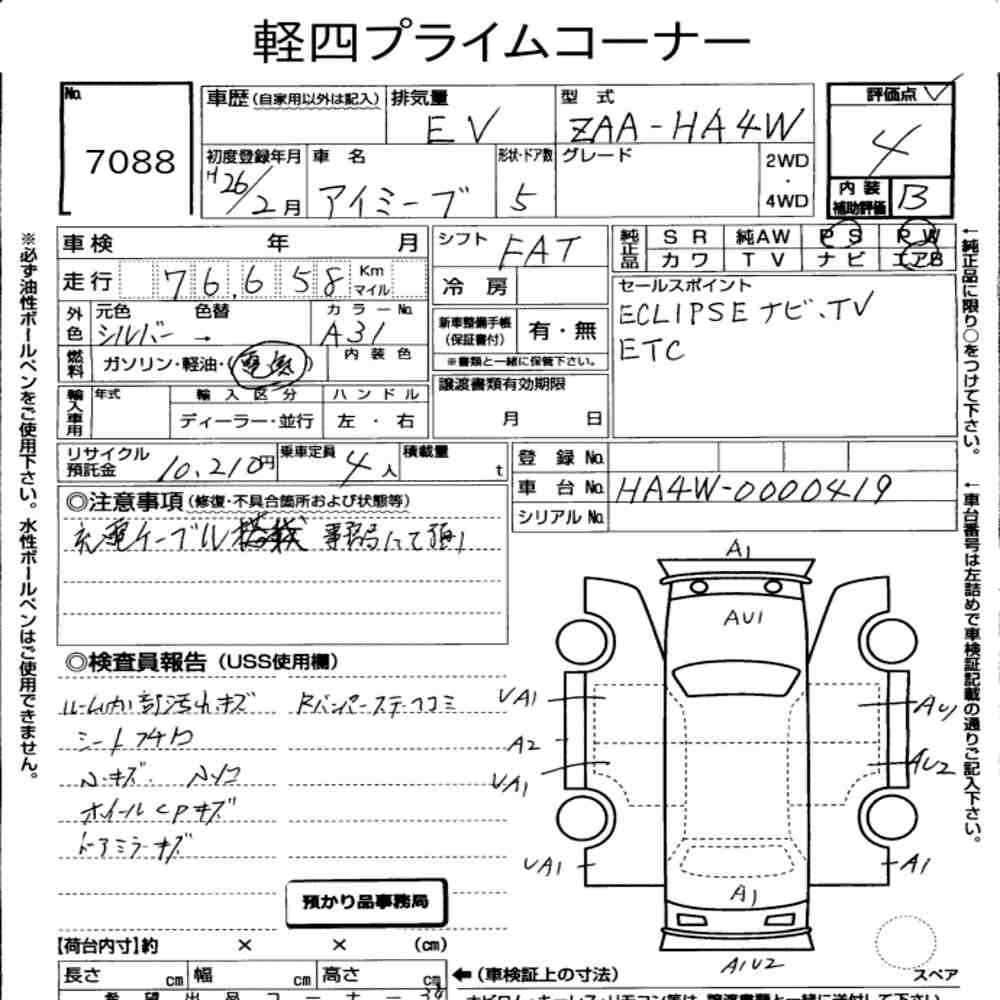 軽四プライムコーナー
No. 7088
車歴 (自家用以外は記入) 排気量 EV
型式 ZAA-HA4W
評価点 4
初度登録年月 H26/2月
車名 アイミーブ
形状・ドア数 5
グレード
2WD・4WD
内装補助評価 B
車検 年 月
走行 76,658 Km マイル
外色 元色 シルバー 色替 → カラーNo. A31
燃料 ガソリン・軽油・(電気) 内装色
輸入車用 年式 輸入区分 ディーラー・並行 ハンドル 左・右
シフト FAT
冷房
新車整備手帳 (保証書付) 有・無
※書類と一緒に保管下さい。
譲渡書類有効期限 月 日
純正品 SR 純AW PS PW
カワ TV ナビ エアB
セールスポイント
ECLIPSE ナビ、TV
ETC
リサイクル預託金 10,210円 乗車定員 4人 積載量 t
登録No.
車台No. HA4W-0000419
シリアルNo.
◎注意事項 (修復・不具合箇所および状態等)
充電ケーブル搭載 事務局にて預り
◎検査員報告 (USS使用欄)
ルーム内 キズ
Rバンパーステーコミ
シート
ホイールCPキズ
ドアミラーキズ
預かり品事務局
A1
AU1
UA1
A2
UA1
UA1
AU1
AU2
A1
A1
A1U2
スペア
【荷台内寸】約 × × (cm)
長さ cm 幅 cm 高さ cm
←(車検証上の寸法)
希望出品コーナー
※必ず油性ボールペンをご使用下さい。水性ボールペンはご使用できません。
←純正品に限り○をつけて下さい。
←車台番号は左詰めで車検証記載の通りご記入下さい。